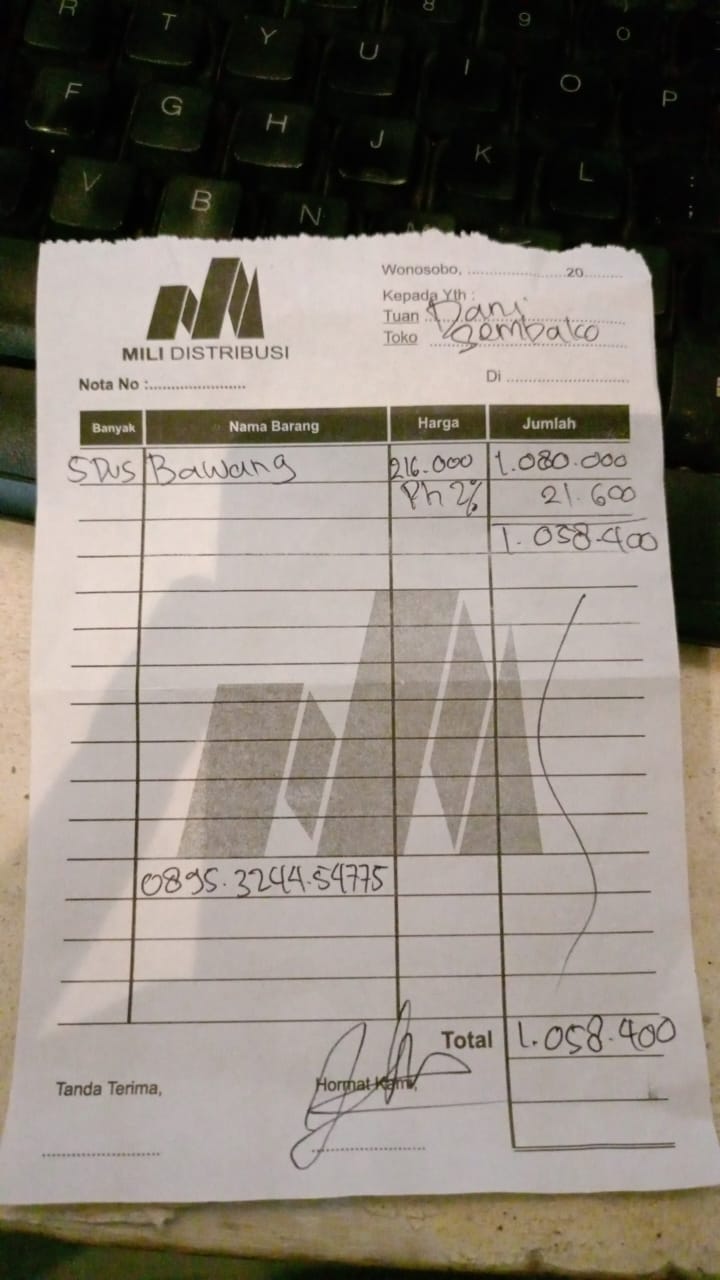 R T Y U I O P
8 9 0
F G H J K L : ;
V B N
MILI DISTRIBUSI
Wonosobo, ........................ 20.........
Kepada Yth :
Tuan Dani
Toko Sembako
Nota No :........................
Di ..............................
Banyak Nama Barang Harga Jumlah
5 Dus Bawang 216.000 1.080.000
Ph 2% 21.600
1.058.400
0895.3244.54775
Total 1.058.400
Tanda Terima, Hormat Kami,